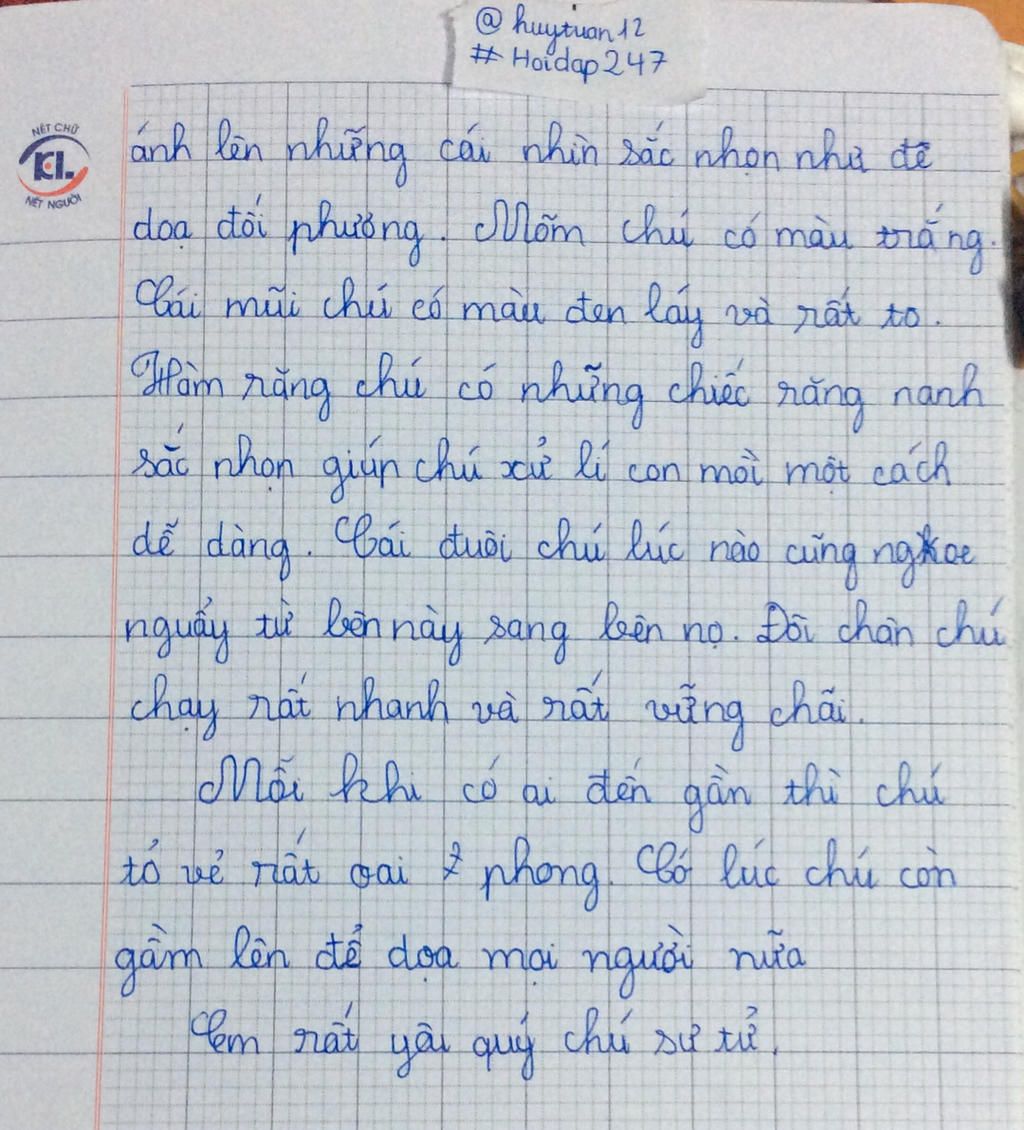 @ huytuan12
# Hoidap247
NÉT CHỮ
KL
NẾT NGƯỜI
ánh lên những cái nhìn sắc nhọn như để
doạ đối phương. Mõm chú có màu trắng.
Cái mũi chú có màu đen láy và rất to.
Hàm răng chú có những chiếc răng nanh
sắc nhọn giúp chú xử lí con mồi một cách
dễ dàng. Cái đuôi chú lúc nào cũng ngoe
nguẩy từ bên này sang bên nọ. Đôi chân chú
chạy rất nhanh và rất vững chãi.
Mỗi khi có ai đến gần thì chú
tỏ vẻ rất oai phong. Có lúc chú còn
gầm lên để dọa mọi người nữa
Em rất yêu quý chú sư tử.